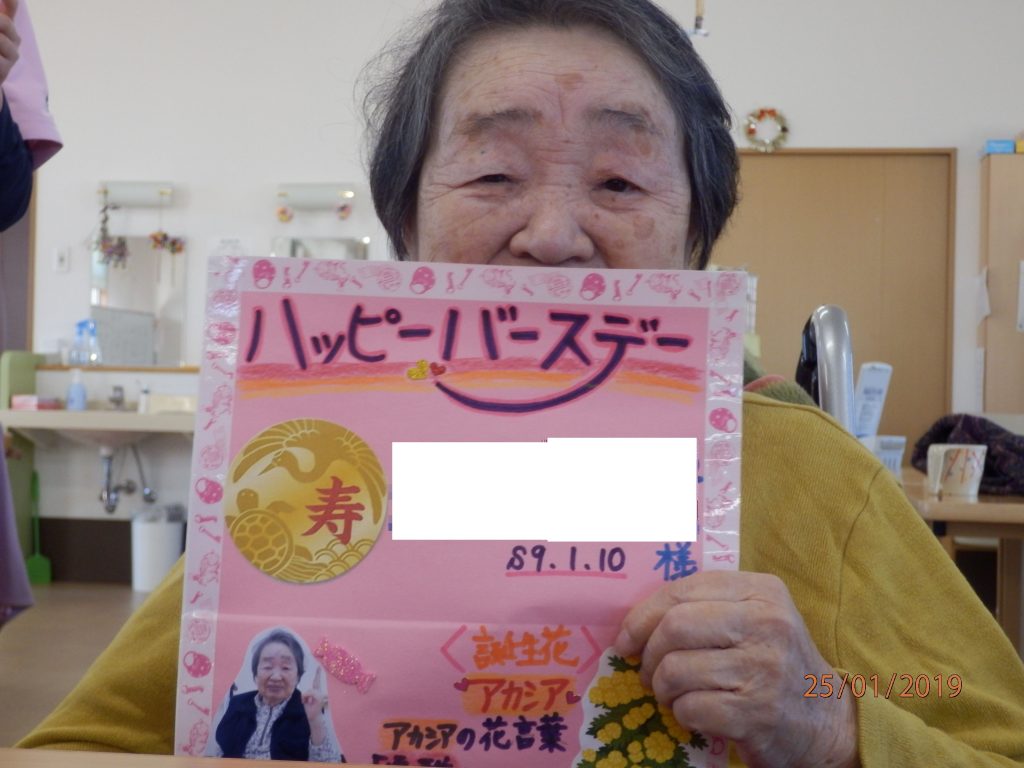 ハッピーバースデー
寿
S9.1.10 様
〈誕生花〉
アカシア
アカシアの花言葉
25/01/2019